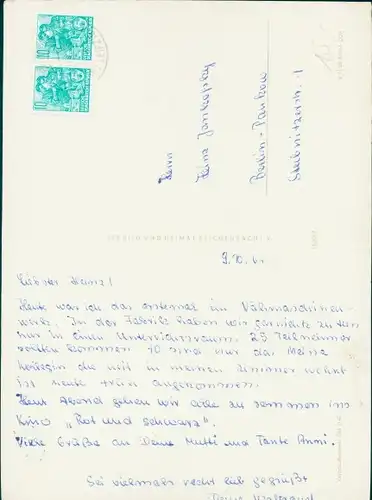 Herrn
Heinz Jankofsky
Berlin-Pankow
Stubnitzerstr. 1
9.10.61
Liebster Heinz!
Heute war ich das erstemal im Nähmaschinen-
werk. In der Fabrik haben wir garnichts zu tun
nur in einen Unterrichtsraum. 25 Teilnehmer
sollten kommen 10 sind nur da. Meine
Kollegin die mit in meinen Zimmer wohnt
ist heute früh angekommen.
Heut Abend gehen wir alle zusammen ins
Kino „Rot und schwarz".
Viele Grüße an Deine Mutti und Tante Anni.
Sei vielmals recht lieb gegrüßt
Deine Waltraut